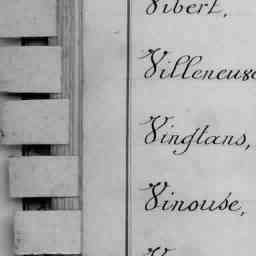 Vibert,
Villeneuse
Vingtans,
Vinouse,